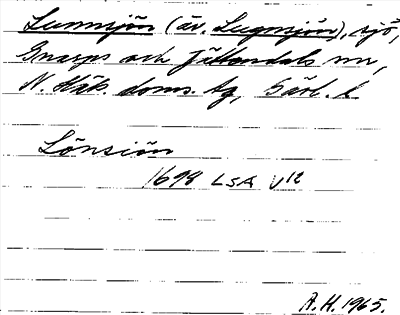 Lunnsjön (äv. Lugnsjön), sjö,
Gnarps och Jättendals snr,
N. Häls. doms. tg, Gävl. l.
Lönsiön
1698 LSA V12
A.H. 1965.